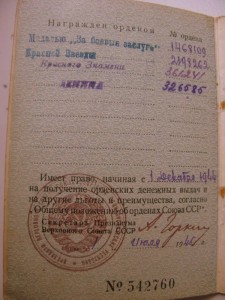 Награжден орденом № ордена
Медалью „За боевые заслуги" 1468109
Красной Звезды 2198263
Красного Знамени
Ленина
Имеет право, начиная с 1 декабря
на получение орденских денежных выдач и
на другие льготы и преимущества, согласно
„Общему положению об орденах Союза ССР".
Секретарь Президиума
Верховного Совета СССР А. Горкин
№ 542760